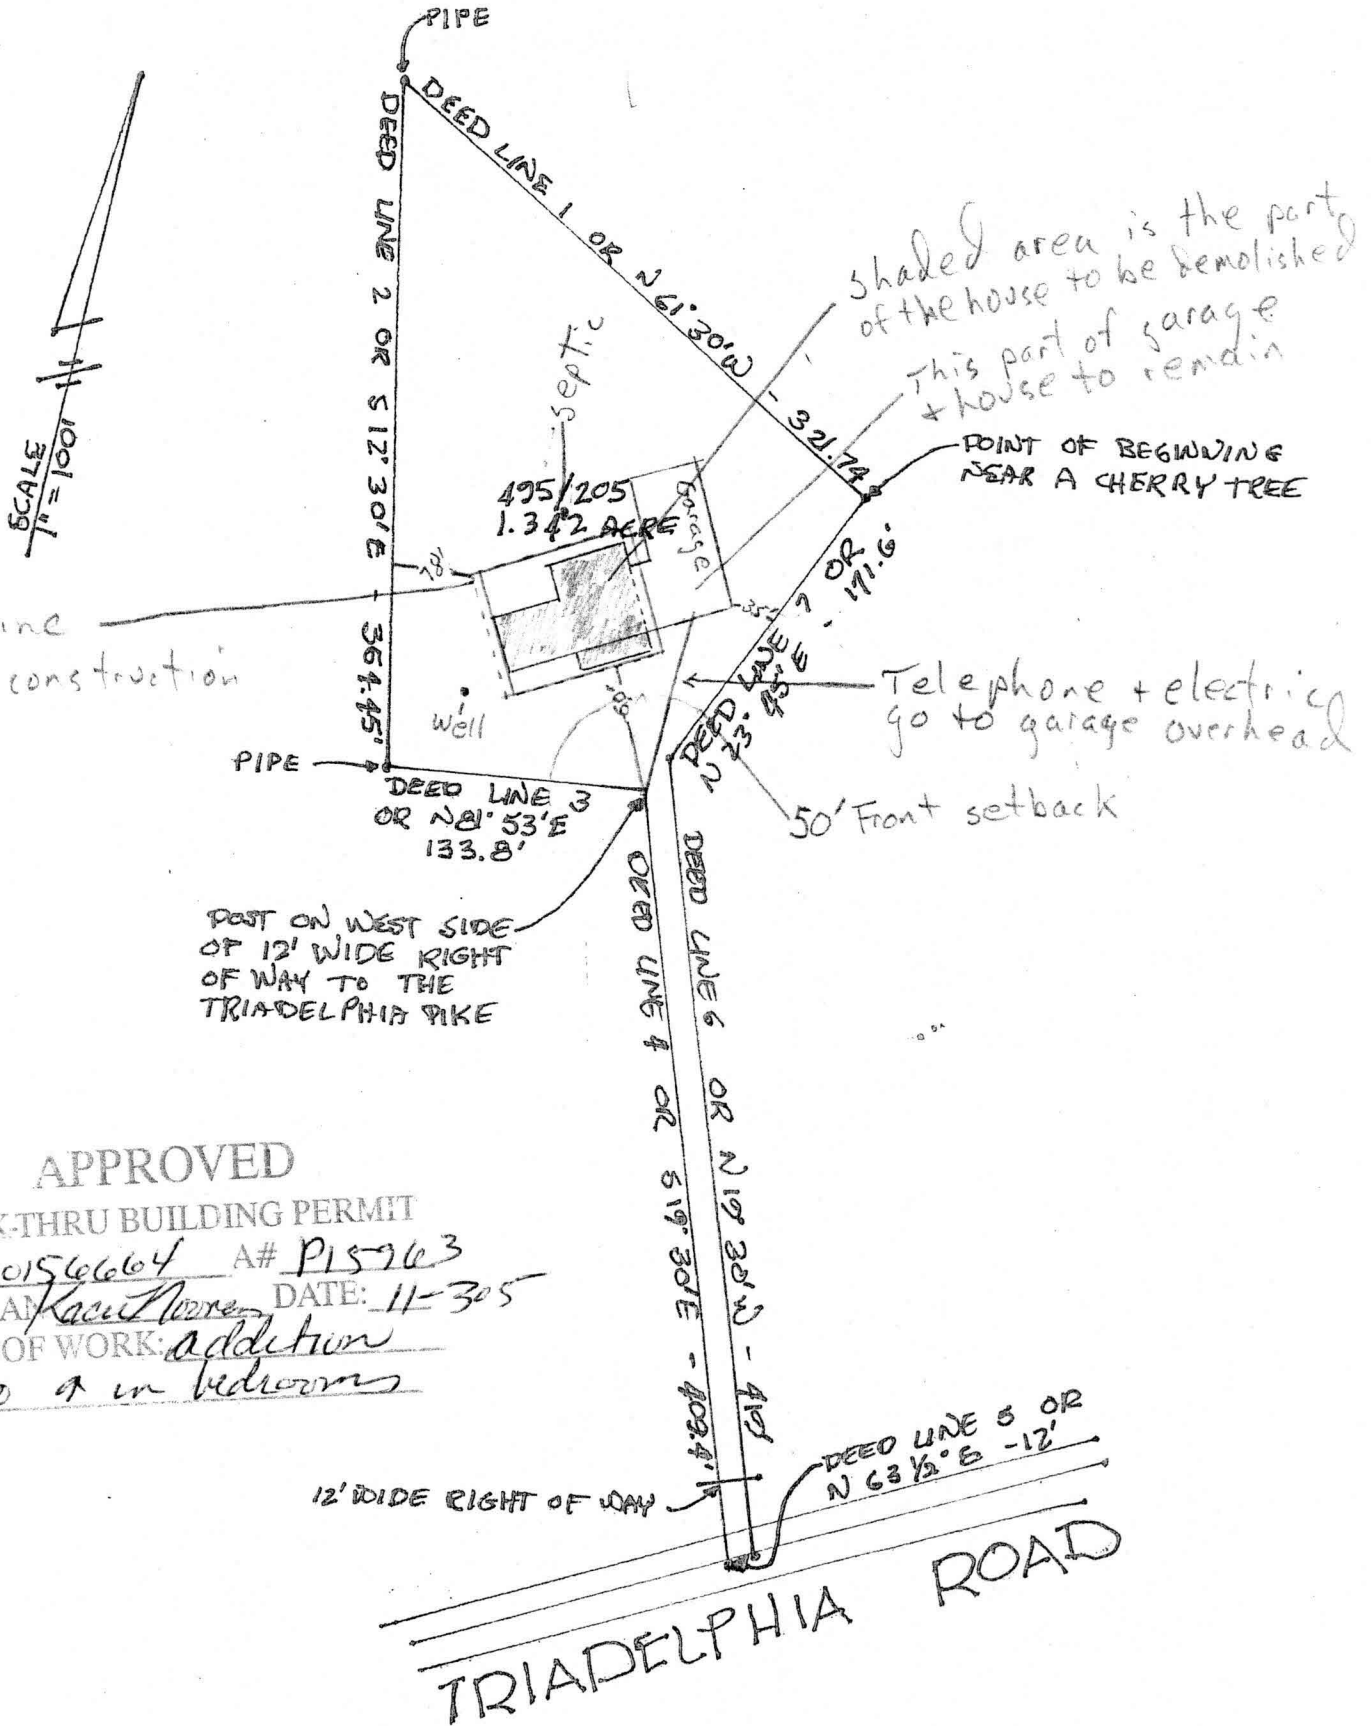 PIPE
DEED LINE 1 OR N 61° 30' W - 321.74
DEED LINE 2 OR S 12° 30' E - 364.45'
SCALE
1" = 100'
shaded area is the part
of the house to be demolished
This part of garage
+ house to remain
POINT OF BEGINNING
NEAR A CHERRY TREE
septic
495/205
1.342 ACRE
Garage
78'
35'
DEED LINE 7 OR
N 23° 45' E 171.6'
construction
Telephone + electric
go to garage overhead
well
PIPE
DEED LINE 3
OR N 81° 53' E
133.8'
50' Front setback
POST ON WEST SIDE
OF 12' WIDE RIGHT
OF WAY TO THE
TRIADELPHIA PIKE
DEED LINE 6 OR N 19° 30' W - 410'
DEED LINE 4 OR S 19° 30' E - 409.4'
APPROVED
K-THRU BUILDING PERMIT
0156664 A# P15963
DATE: 11-305
OF WORK: addition
in bedrooms
DEED LINE 5 OR
N 63 1/2° E - 12'
12' WIDE RIGHT OF WAY
TRIADELPHIA ROAD